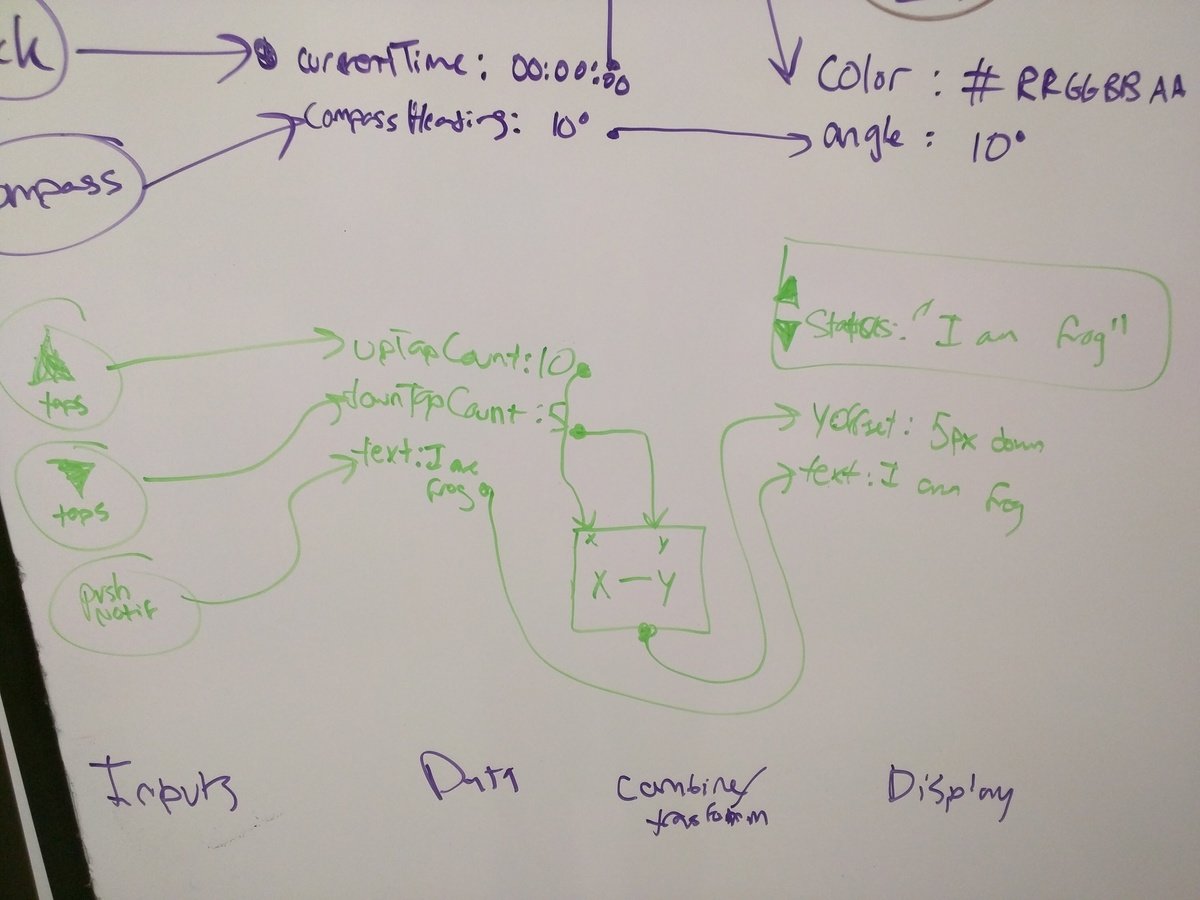 ck
currentTime: 00:00:00
Color: #RRGGBBAA
CompassHeading: 10°
angle: 10°
ompass
Status: "I am frog"
taps
upTapCount: 10
downTapCount: 5
yOffset: 5px down
text: I am
frog
text: I am frog
taps
x y
X — Y
push
Notif
Inputs
Data
Combine/
transform
Display